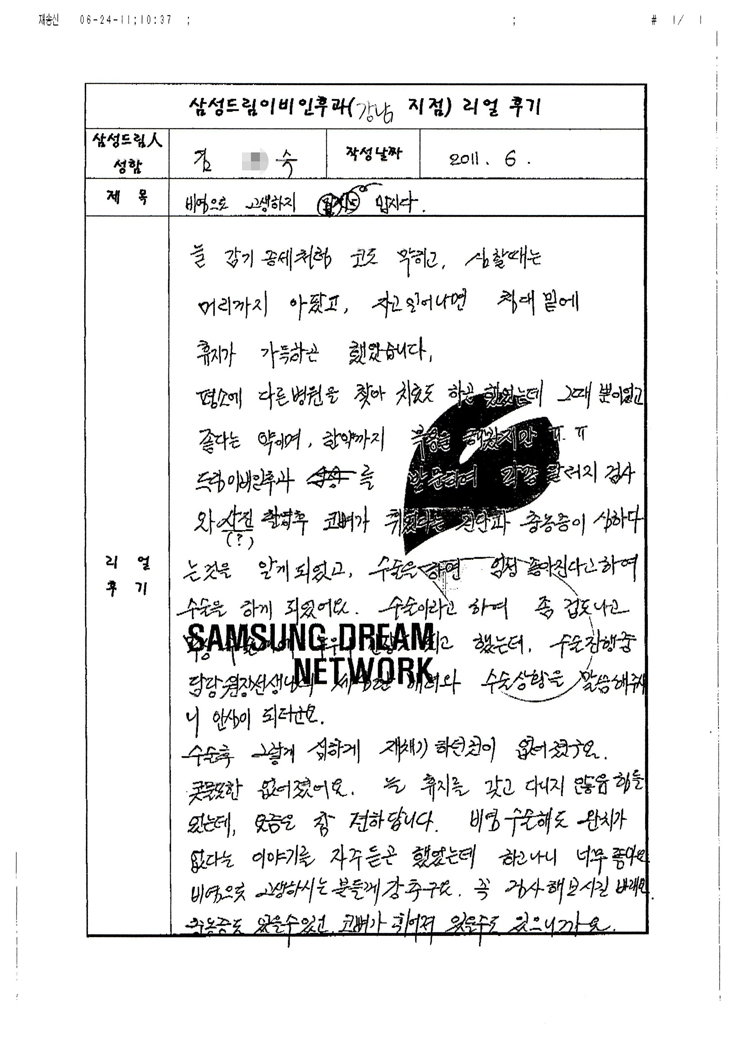 재송신 06-24-11;10:37 ; ; # 1/ 1
삼성드림이비인후과(강남 지점) 리얼 후기
삼성드림人 성함 김 숙 작성날짜 2011. 6.
제 목 비염으로 고생하지 맙시다.
리 얼 후 기
늘 감기 증세처럼 코도 막히고, 심할때는
머리까지 아팠고, 자고일어나면 침대 밑에
휴지가 가득하곤 했었습니다.
평소에 다른병원을 찾아 치료도 하곤 했었는데 그때 뿐이었고
좋다는 약이며, 한약까지 복용을 해봤지만 ㅠ.ㅠ
드림이비인후과 를 방문하여 각종 알러지 검사
와 사진 촬영후 코뼈가 휘었다는 진단과 축농증이 심하다
(?)
는것을 알게되었고, 수술을 하면 엄청 좋아진다고하여
수술을 하게 되었어요. 수술이라고 하여 좀 겁도나고
되고 했는데, 수술진행중
담당원장선생님의 세심한 배려와 수술상황을 말씀해주시
니 안심이 되더군요.
수술후 그렇게 심하게 재채기 하던것이 없어졌구요.
콧물또한 없어졌어요. 늘 휴지를 갖고 다니지 않음 힘들
었는데, 요즘은 참 편하답니다. 비염 수술해도 완치가
없다는 이야기를 자주듣곤 했었는데 하고나니 너무 좋아요
비염으로 고생하시는 분들께 강추구요. 꼭 검사해보시길 바래요.
축농증도 있을수있고 코뼈가 휘어져 있을수도 있으니까요.
SAMSUNG DREAM
NETWORK